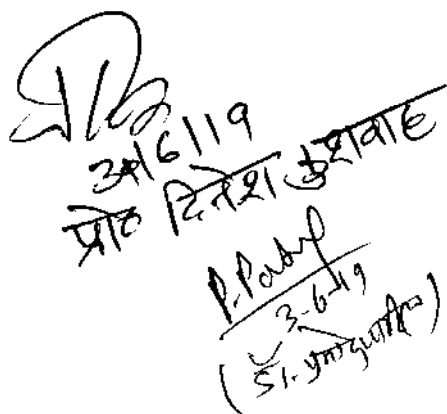 3/6/19
प्रो० दिनेश कुशवाह
P. Patel
3-6-19
(डॉ.